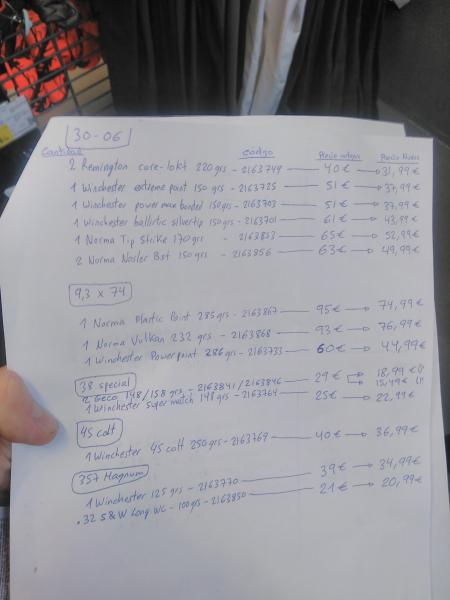 30-06
Cantidad código Precio antiguo Precio Nuevo
2 Remington core-lokt 220grs - 2163749 40€ → 31,99€
1 Winchester extreme point 150 grs - 2163725 51€ → 37,99€
1 Winchester power max bonded 150grs - 2163703 51€ → 37,99€
1 Winchester ballistic silvertip 150grs - 2163701 61€ → 43,99€
1 Norma Tip Strike 170grs - 2163853 65€ → 52,99€
2 Norma Nosler Bst 150grs - 2163856 63€ → 49,99€
9,3 x 74
1 Norma Plastic Point 285grs - 2163867 95€ → 74,99€
1 Norma Vulkan 232 grs - 2163868 93€ → 76,99€
1 Winchester Powerpoint 286grs - 2163733 60€ → 44,99€
38 special
2 Geco 148/158 grs - 2163841/2163846 29€ → 18,99€
→ 15,49€
1 Winchester super match 148grs - 2163764 25€ → 22,99€
45 colt
1 Winchester 45 colt 250grs - 2163769 40€ → 36,99€
357 Magnum
1 Winchester 125 grs - 2163770 39€ → 34,99€
.32 S&W Long WC - 100grs - 2163850 21€ → 20,99€